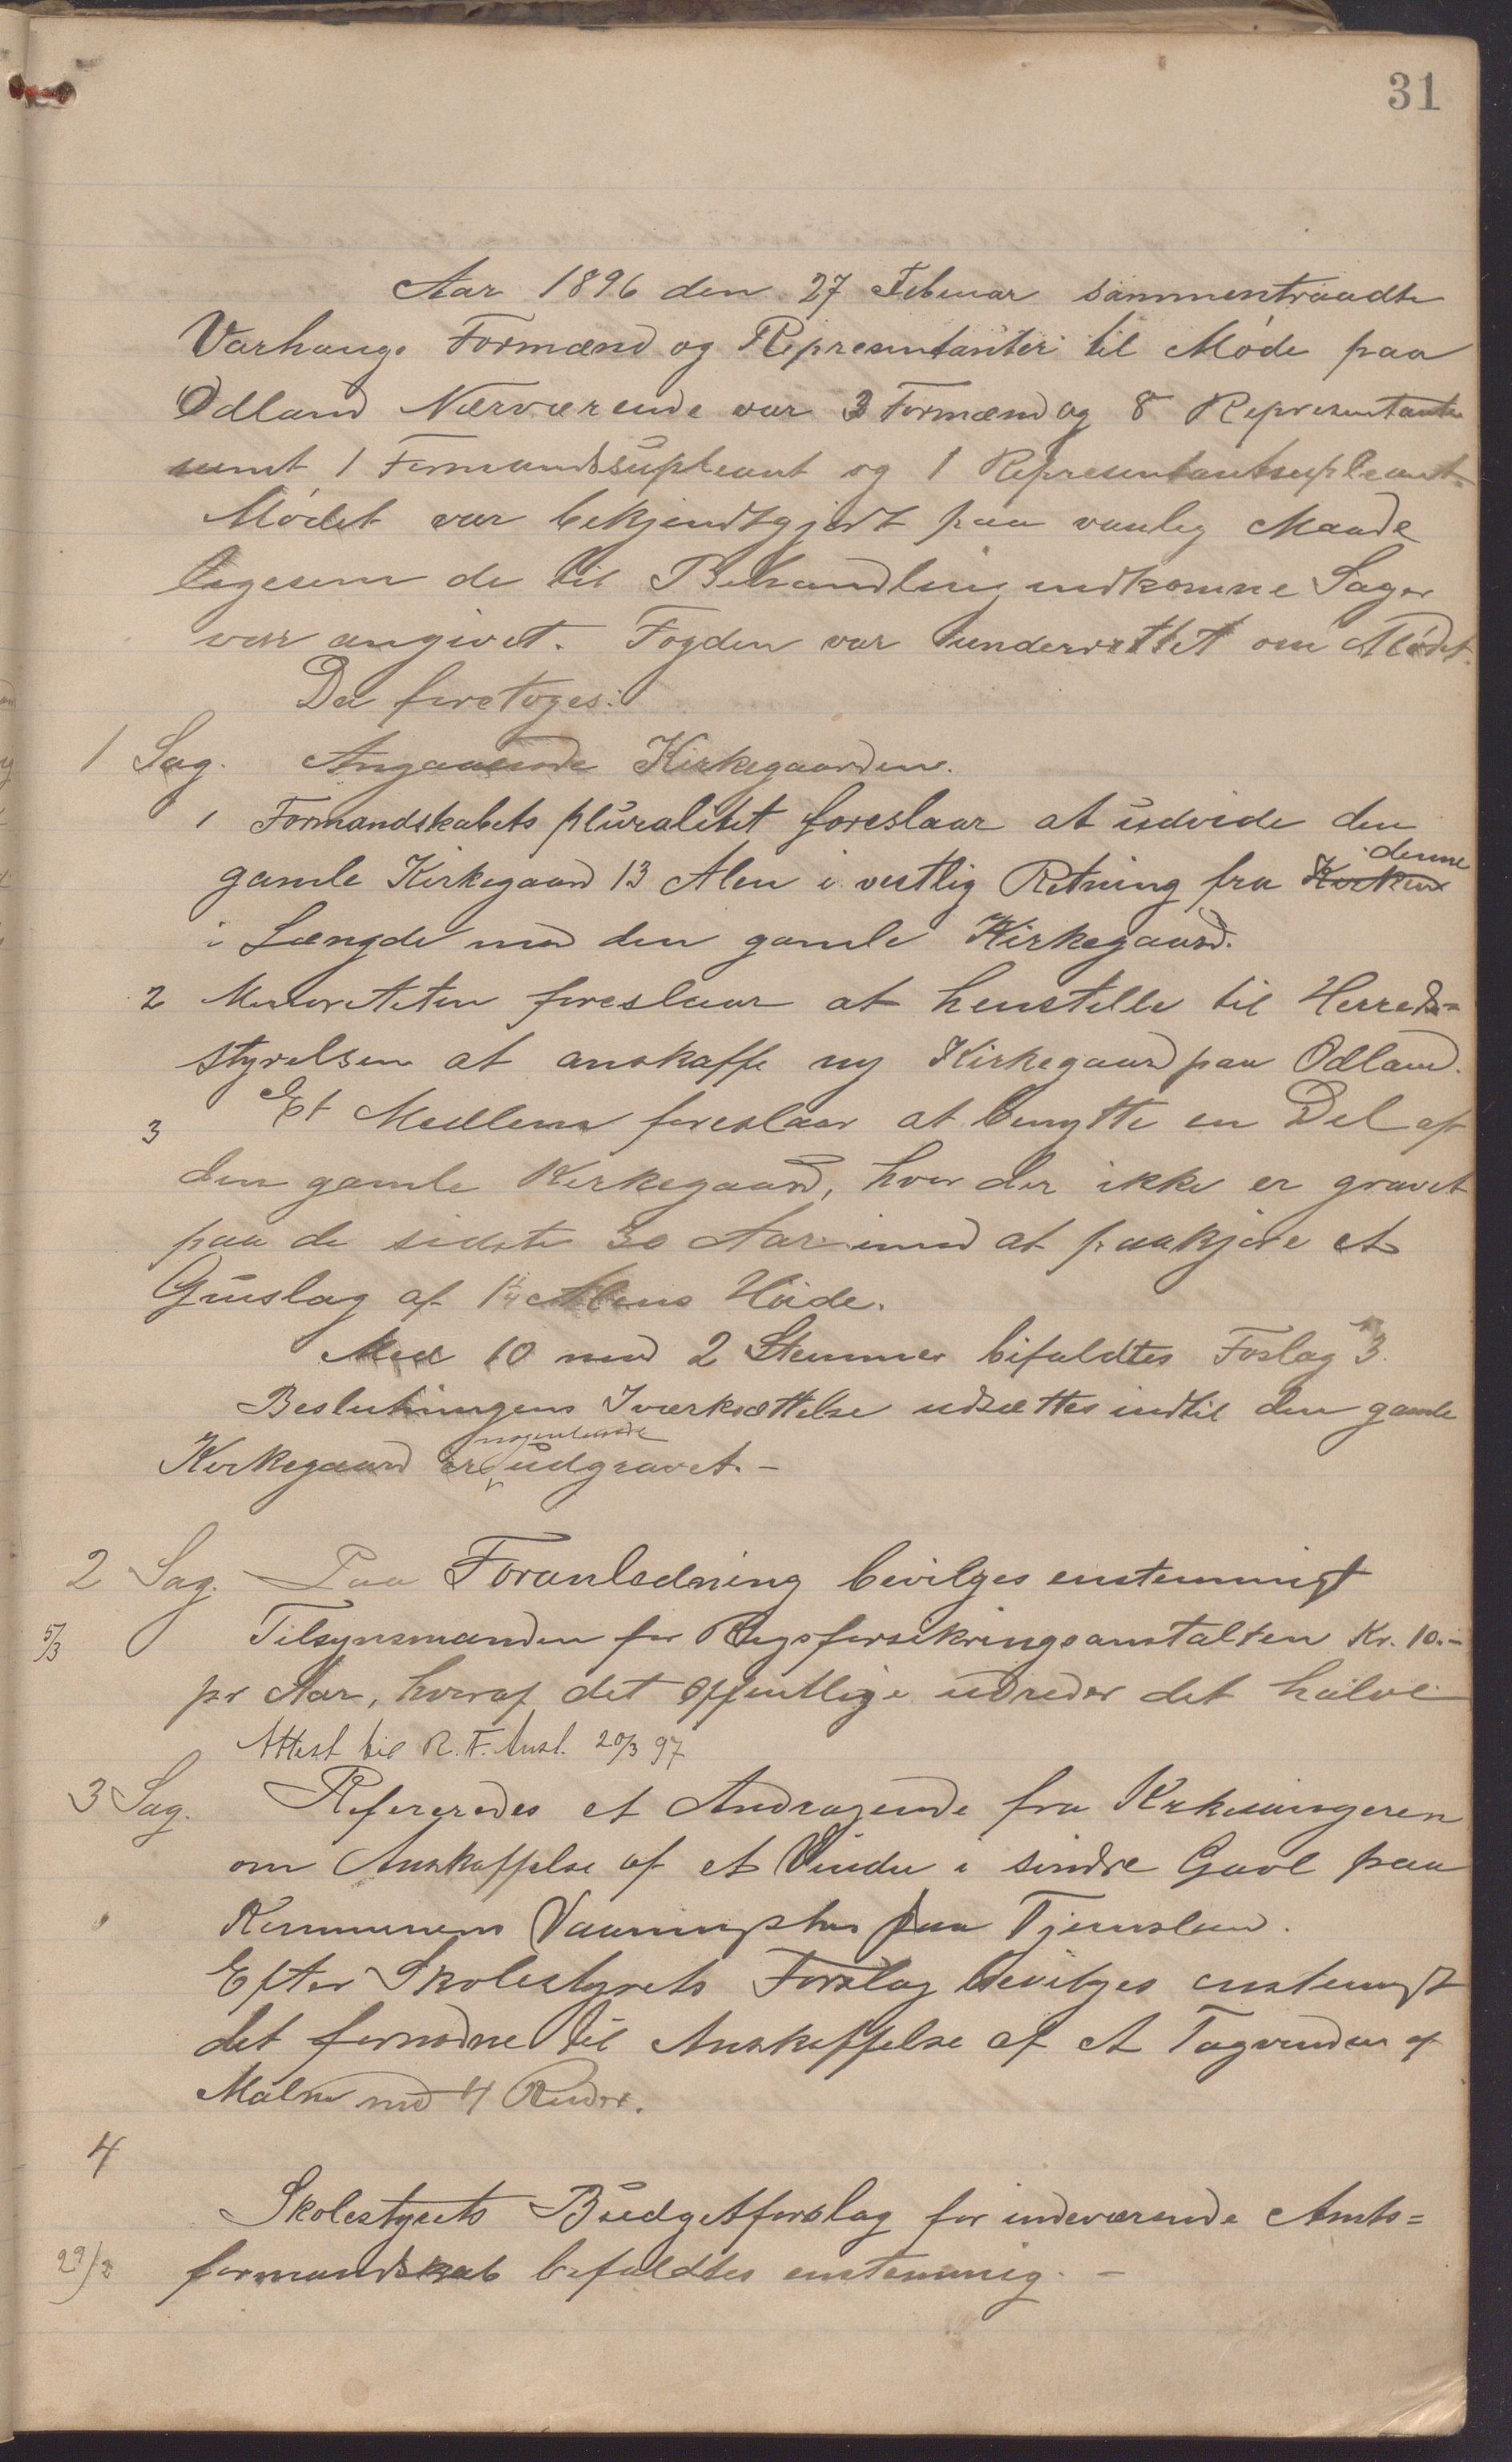 31
Aar 1896 den 27 Februar sammentraadte
Varhaugs Formænd og Repræsentanter til Møde paa
Odland Nærværende var 3 Formænd og 8 Representanter
samt 1 Formandssupleant og 1 Representantsupleant.
Mødet var bekjendtgjort paa vanlig Maade
ligesom de til Behandling indkomne Sager
var angivet. Fogden var underrettet om Mødet.
Da foretoges:
1 Sag. Angaaende Kirkegaarden.
1 Formandskabets pluralitet foreslaar at udvide den
gamle Kirkegaard 13 Alen i vestlig Retning fra Kirken denne
i Længde med den gamle Kirkegaard.
2 Minoriteten foreslaar at henstille til Herreds=
styrelsen at anskaffe ny Kirkegaard paa Odland.
3 Et Medlem foreslaar at benytte en Del af
den gamle Kirkegaard, hvor der ikke er gravet
paa de sidste 30 Aar imod at paakjøre et
Gruslag af 1¼ Alens Høide.
Med 10 mod 2 Stemmer bifaldtes Foslag 3.
Beslutningens Iværksættelse udsættes indtil den gamle
Kirkegaard er nogenlunde udgravet.-
2 Sag. Paa Foranledning bevilges enstemmigt
5/3 Tilsynsmanden for Rigsforsikringsanstalten Kr. 10.-
pr Aar, hvoraf det offentlige udreder det halve
Attest til R. F. Anst. 20/3 97
3 Sag. Refereredes et Andragende fra Kirkesangeren
om Anskaffelse af et Vindu i søndre Gavl paa
Kommunens Vaaningshus paa Tjemsland.
Efter Skolestyrets Forslag bevilges enstemigt
det fornødne til Anskaffelse af et Tagvindu af
Malm med 4 Ruder.
4
Skolestyrets Budgetforslag for indeværende Amts=
22/3 formandskab bifaldtes enstemmig. -